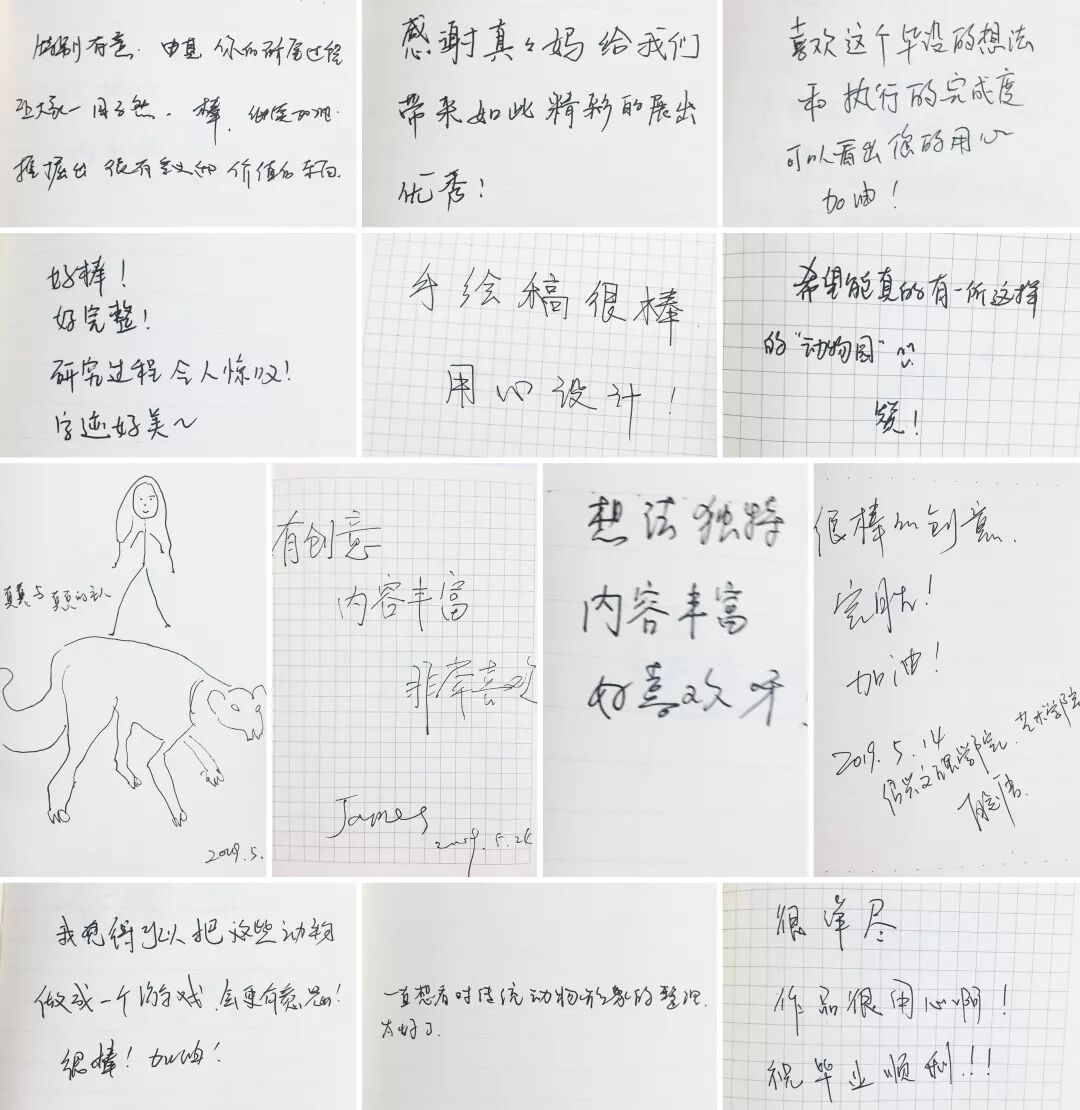 特别有意
让大家一目了然。棒,
挖掘出很有意义和价值的东西.
感谢真々妈给我们
带来如此精彩的展出
优秀!
喜欢这个毕设的想法
和执行的完成度
可以看出您的用心
加油!
好棒!
好完整!
研究过程令人惊叹!
字迹好美~
手绘稿很棒
用心设计!
希望能真的有一所这样
的"动物园"
赞!
真真与真真的主人
2019.5.
有创意
内容丰富
非常喜欢
James
2019.5.24
想法独特
内容丰富
好喜欢呀!
很棒的创意.
完美!
加油!
2019.5.14
绍兴文理学院 艺术学院
我觉得可以把这些动物
做成一个游戏,会更有意思!
很棒!加油!
一直想看对传统动物形象的整理.
太好了.
很详尽
作品很用心啊!
祝毕业顺利!!!